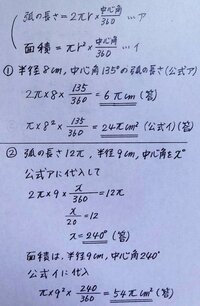 弧の長さ = 2πr × 中心角/360 … ア
面積 = πr² × 中心角/360 … イ
① 半径8cm, 中心角135°の弧の長さ(公式ア)
2π×8×135/360 = 6πcm(答)
π×8²×135/360 = 24πcm²(公式イ)(答)
② 弧の長さ12π, 半径9cm, 中心角x°
公式アに代入して
2π×9×x/360 = 12π
x/20 = 12
x = 240°(答)
面積は, 半径9cm, 中心角240°
公式イに代入
π×9²×240/360 = 54πcm²(答)